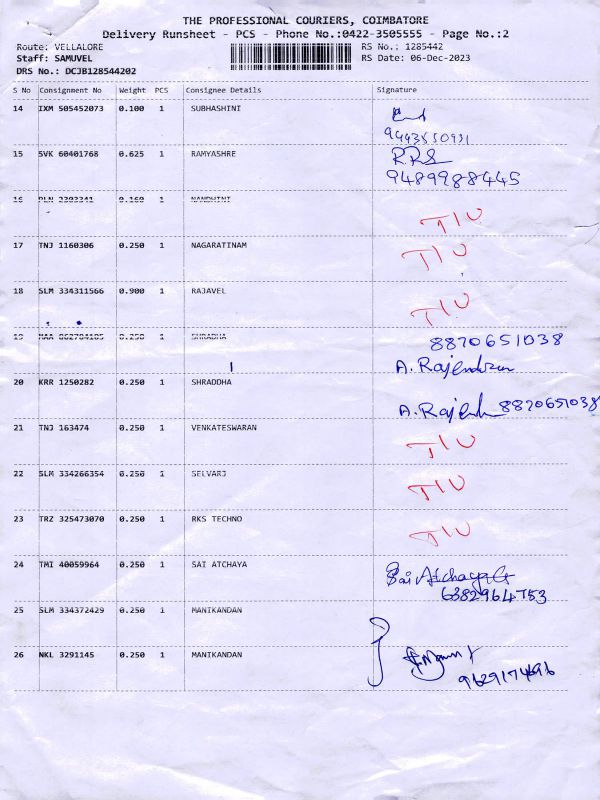 THE PROFESSIONAL COURIERS, COIMBATORE
Delivery Runsheet - PCS - Phone No.:0422-3505555 - Page No.:2
Route: VELLALORE RS No.: 1285442
Staff: SAMUVEL RS Date: 06-Dec-2023
DRS No.: DCJB128544202
S No Consignment No Weight PCS Consignee Details Signature
14 IXM 505452073 0.100 1 SUBHASHINI
9443550931
15 SVK 60401768 0.625 1 RAMYASHRE R.R.S
9489988445
16 PLN 2303341 0.160 1 NANDHINI
TIU
17 TNJ 1160306 0.250 1 NAGARATINAM TIU
18 SLM 334311566 0.900 1 RAJAVEL TIU
19 MAA 862704105 0.250 1 SHRADHA 8870651038
A. Rajendran
20 KRR 1250282 0.250 1 SHRADDHA
A. Rajen 8870651038
21 TNJ 163474 0.250 1 VENKATESWARAN TIU
22 SLM 334266354 0.250 1 SELVARJ TIU
23 TRZ 325473070 0.250 1 RKS TECHNO TIU
24 TMI 40059964 0.250 1 SAI ATCHAYA Sai Atchaya G
6382964753
25 SLM 334372429 0.250 1 MANIKANDAN
26 NKL 3291145 0.250 1 MANIKANDAN
9629174696